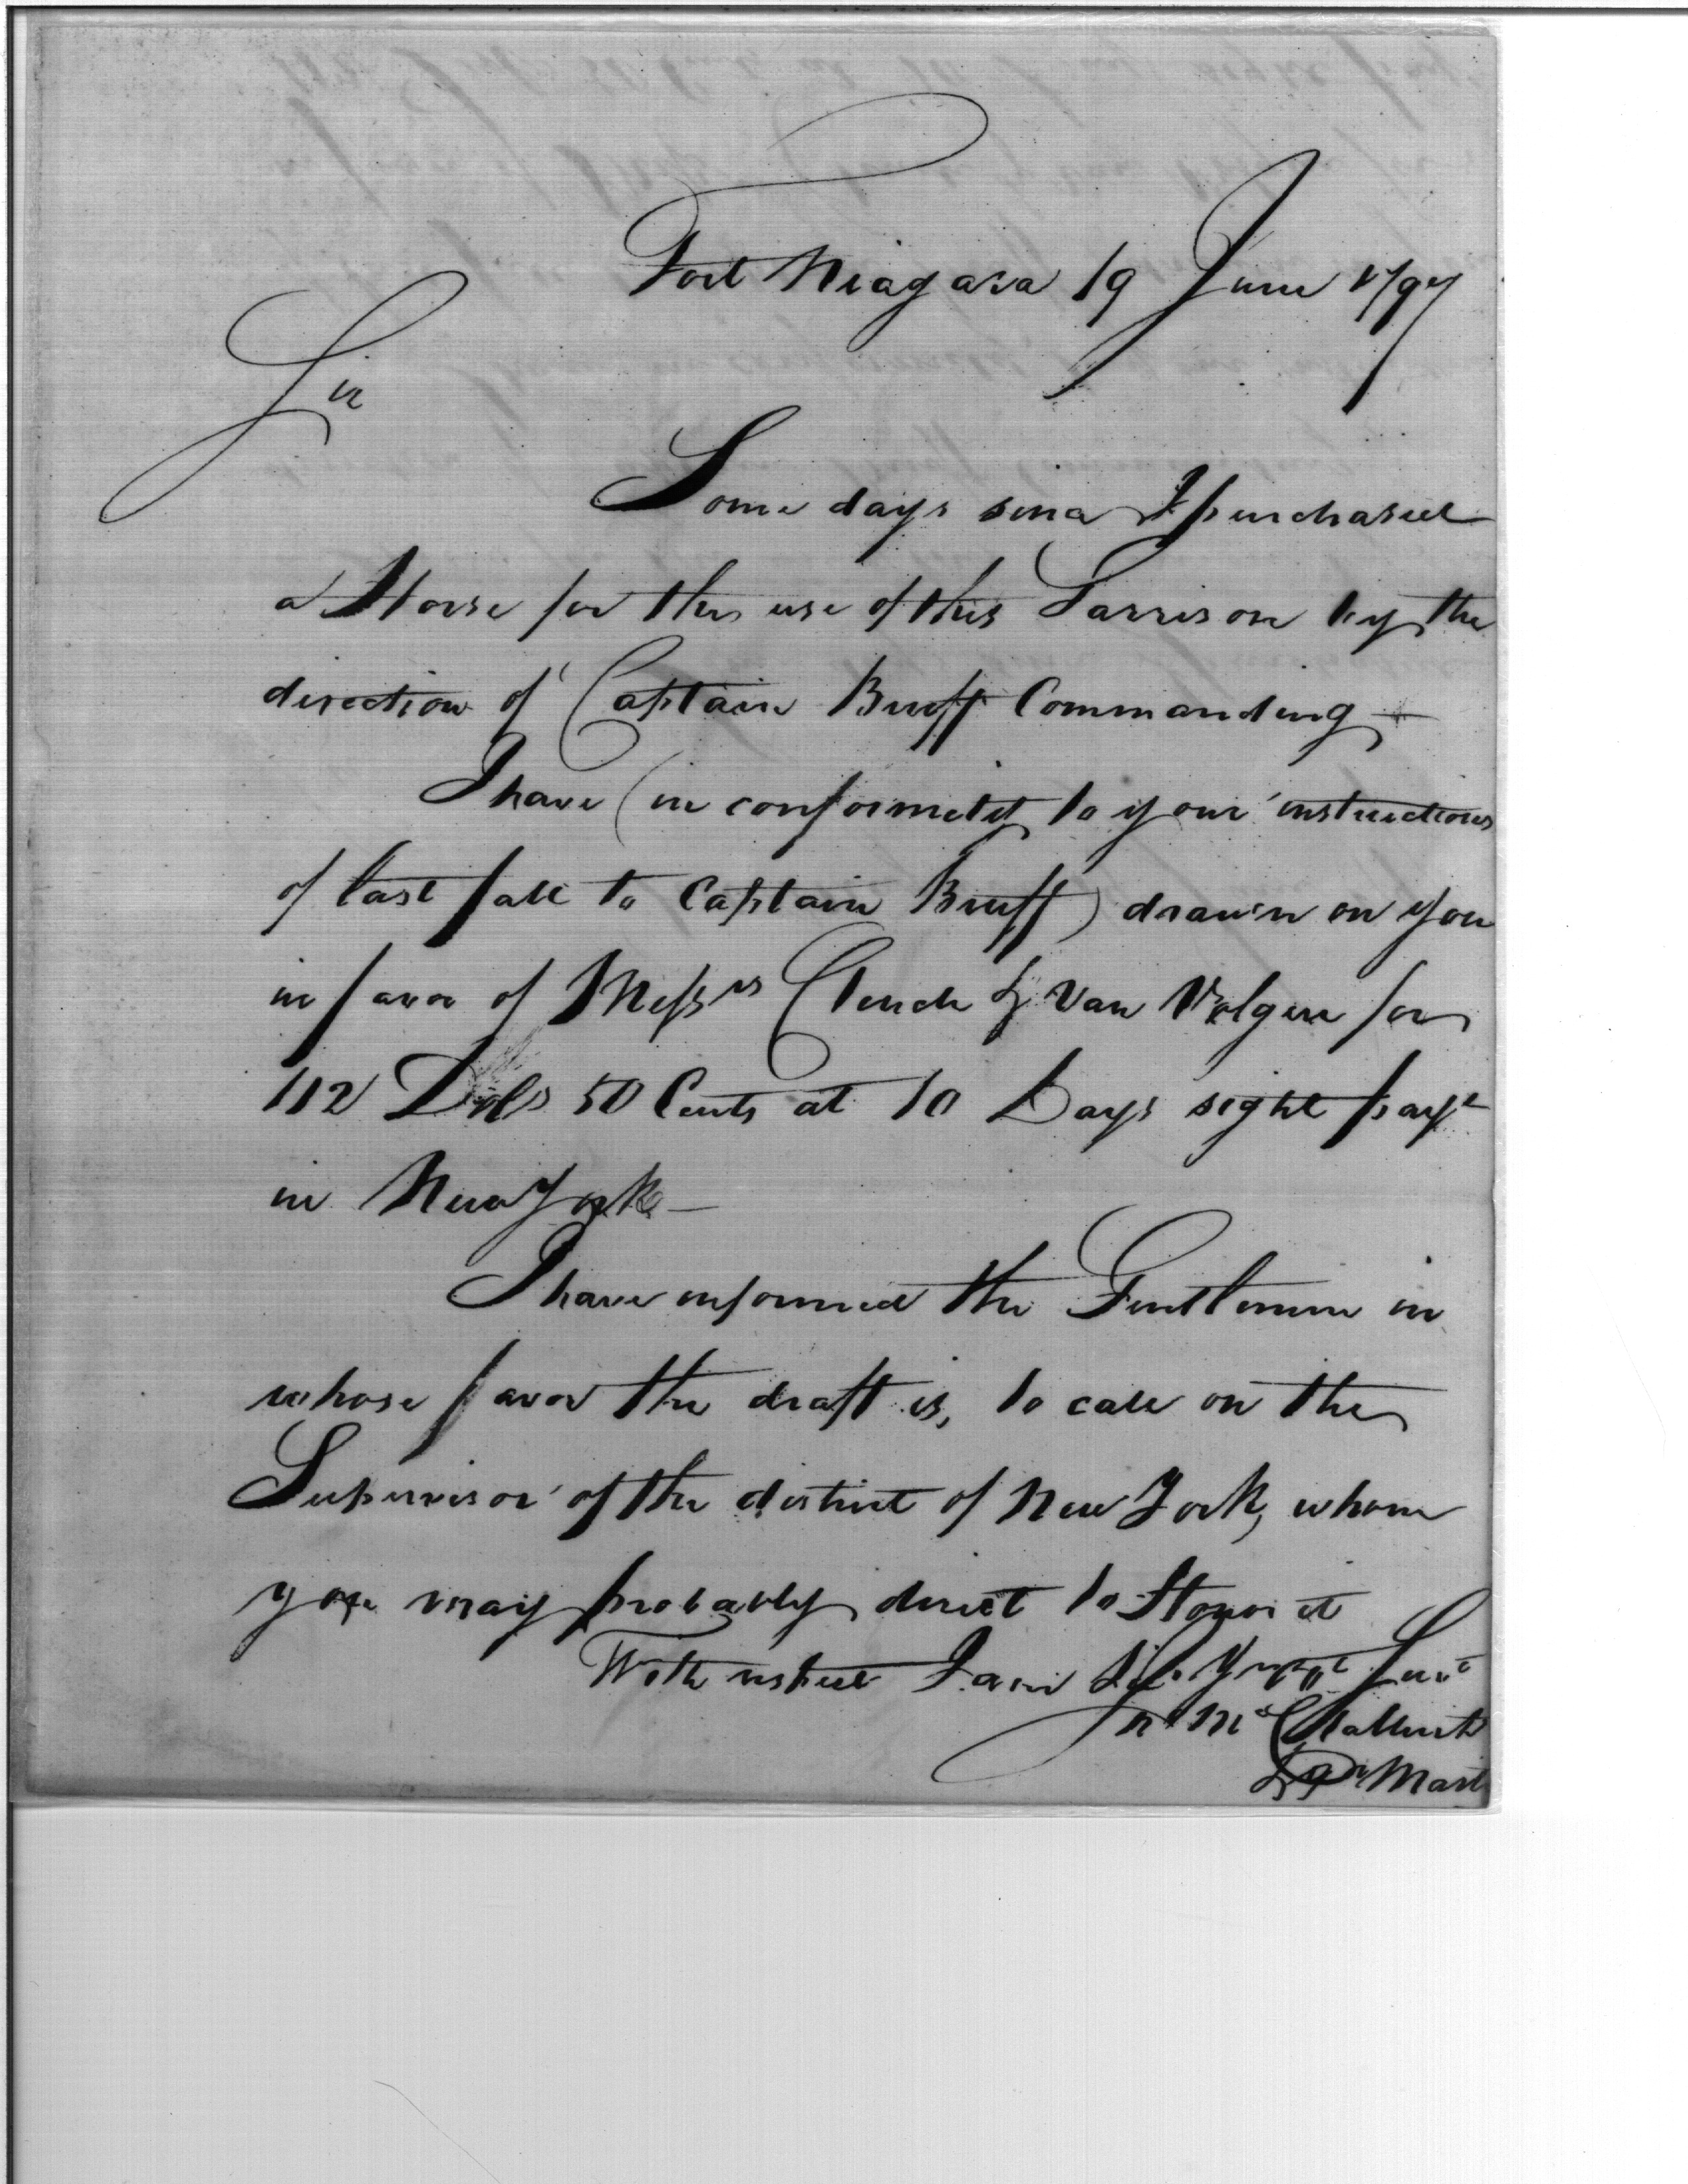 Fort Niagara 19 June 1797
Sir
Some days since I purchased
a Horse for the use of this Garrison by the
direction of Captain Bruff Commanding —
I have (in conformity to your instructions
of last fall to Captain Bruff) drawn on you
in favor of Messrs Clench & Van Volgen for
112 Dols 50 Cents at 10 Days sight payt
in New York —
I have informed the Gentlemen in
whose favor the draft is, to call on the
Supervisor of the district of New York, whom
you may probably direct to Honor it
With respect I am Sir Servt
Jno McClallen
Mast